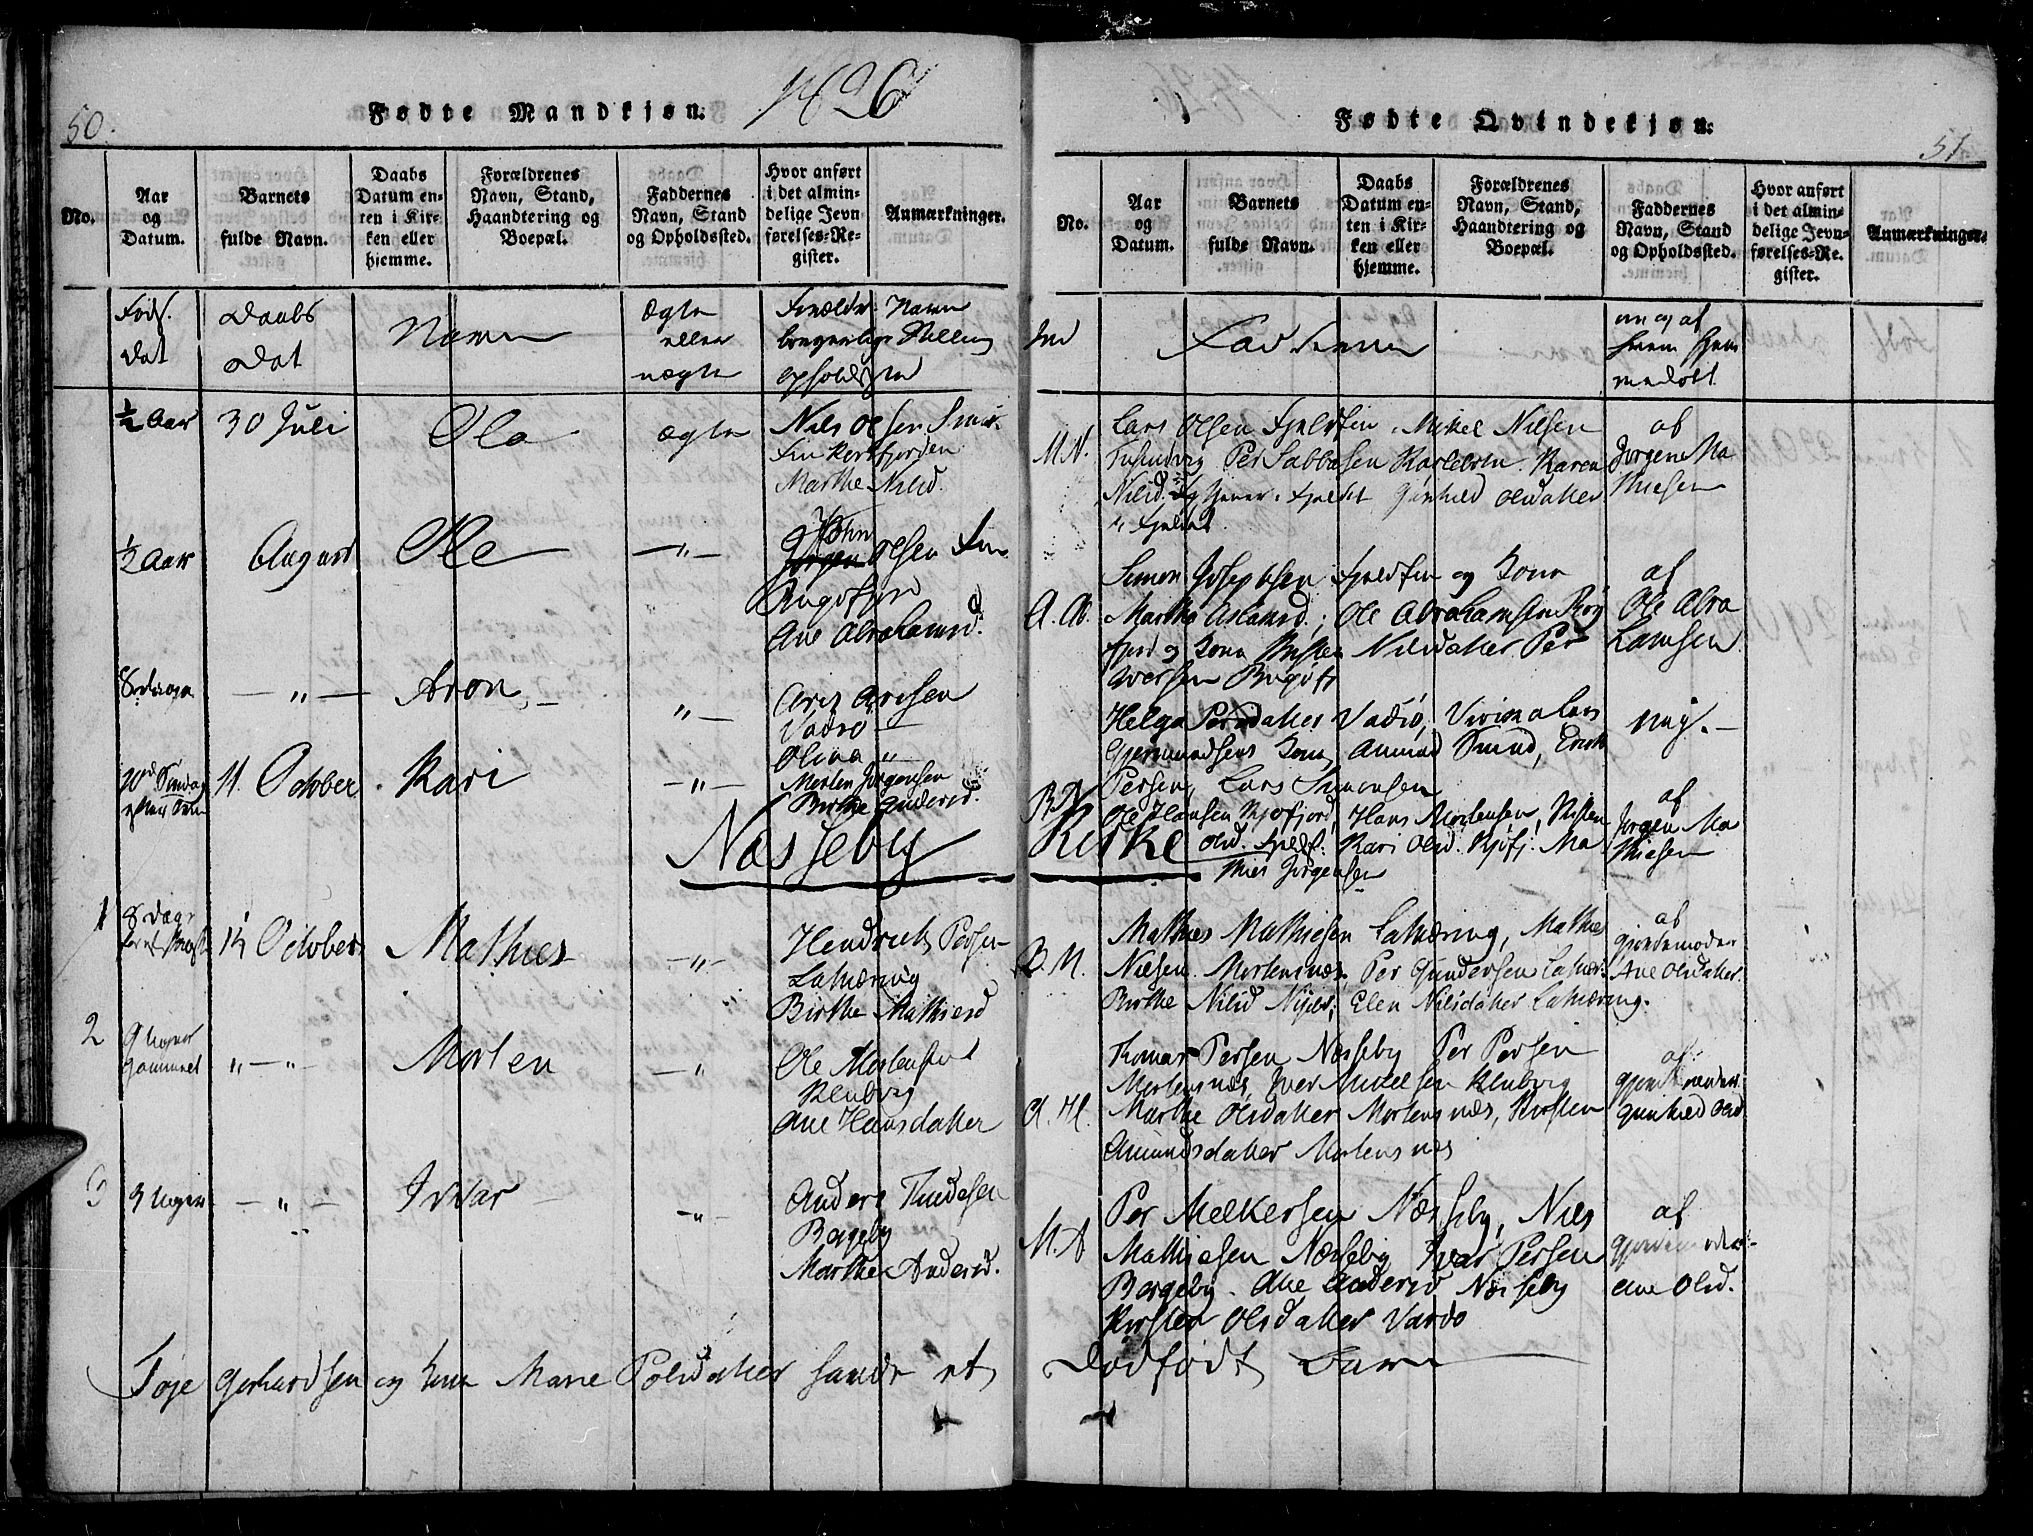 50.
Fødte Mandkjøn.
1826
No.
Aar
og
Datum.
Barnets
fulde Navn.
Daabs
Datum en-
ten i Kir-
ken eller
hjemme.
Forældrenes
Navn, Stand,
Haandtering og
Boepæl.
Faddernes
Navn, Stand
og Opholdssted.
Hvor anført
i det almin-
delige Jevn-
førelses-Re-
gister.
Anmærkninger.
Føds.
Dat
Daabs
Dat
Navn
Ægte
eller
uægte
Forældr. Navn
borgerlige Stilling
opholdsted
½ Aar
30 Juli
Ola
Ægte
Nils Olsen
Marthe Nilsd.
½ Aar
August
Ole
— " —
John
Jørgen Olsen
Bugøfjord
Ane Abrahamsd.
8 dage
— " —
Aron
" —
Aris Arisen
Vadsø
Olina "
11. October
Kari
— " —
Morten Jørgensen
Birthe Andersd.
Næsseby
1
8 dage
14 October
Mathies
— " —
Hendrich Persen
Latnæring
Birthe Mathisd
2
9 uger
gammel
" — "
Morten
— "
Ole Mortensen
Klubvig
Ane Hansdatter
3
9 uger
— " —
Ivar
— " —
Anders Thudesen
Bergeby
Marthe Andersd.
Foje Gerhardsen og kone Marie Polsdatter havde et
Fødte Qvindekjøn.
51
No.
Aar
og
Datum.
Barnets
fulde Navn.
Daabs
Datum en-
ten i Kir-
ken eller
hjemme.
Forældrenes
Navn, Stand,
Haandtering og
Boepæl.
Faddernes
Navn, Stand
og Opholdssted.
Hvor anført
i det almin-
delige Jevn-
førelses-Re-
gister.
Anmærkninger.
Faddere
om og af
hvem hjem
medøbt
M N.
Lars Olsen Mikel Nielsen
Per Sabbasen Karen
Nilsd. Gunhild Olsdatter
af
Jørgen Ma
thiesen
A. Ab.
Simon Josephsen og Kone
Marthe Aslaksd.; Ole Abrahamsen Bug
fjord og Kone Kirsten Nilsdatter Per
Iversen Bugøfj
af
Ole Abra
hamsen
Helga Persdatter Vadsø, Lars
Gjermundsens Kone, Erick
Persen, Lars Simonsen
nej. —
B A
Ole Hansen Kjøfjord, Hans Mortensen, Kirsten
Kirke Olsd. Kari Olsd. Kjøfj. Ma
thies Jørgensen
af
Jørgen Ma
thiesen
B. M.
Mathies Mathiesen Latnæring, Mathies
Nielsen Mortensnæs, Per Gundersen Latnær.
Birthe Nilsd Nyeb; Elen Nilsdatter Latnæring.
af
Gjordemoder
Ane Olsdatter
A. H.
Thomas Persen Næsseby Per Persen
Mortensnæs, Iver Mikelsen Klubvig
Marthe Olsdatter Mortensnæs, Kirsten
Amundsdatter Mortensnæs
af
Gjordemoder
Gunhild Olsd
M. A
Per Melkersen Næsseby, Nils
Mathiesen Næsseby Ivar Persen
Bergeby. Ane Andersd Næsseby
Kirsten Olsdatter Vardø
af
Gjordemoder
Ane Olsd.
Dødfødt Barn